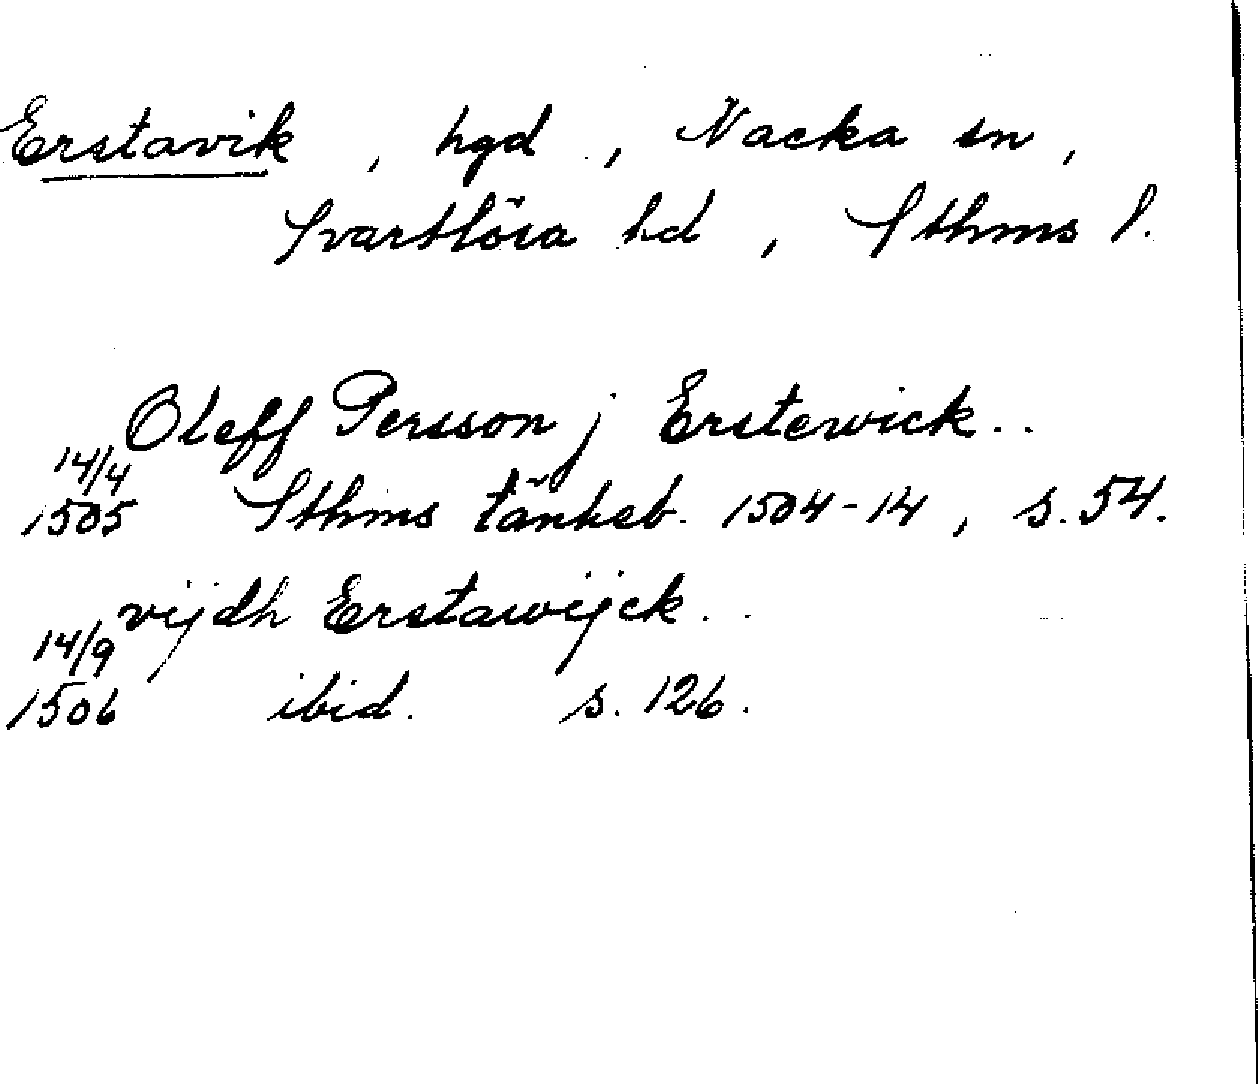 Erstavik, hgd, Nacka sn,
Svartlösa hd, Sthms l.
Oleff Persson j Erstewick..
14/4
1505 Sthms tänkeb. 1504-14, s. 54.
vijdh Erstawijck..
14/9
1506 ibid. s. 126.